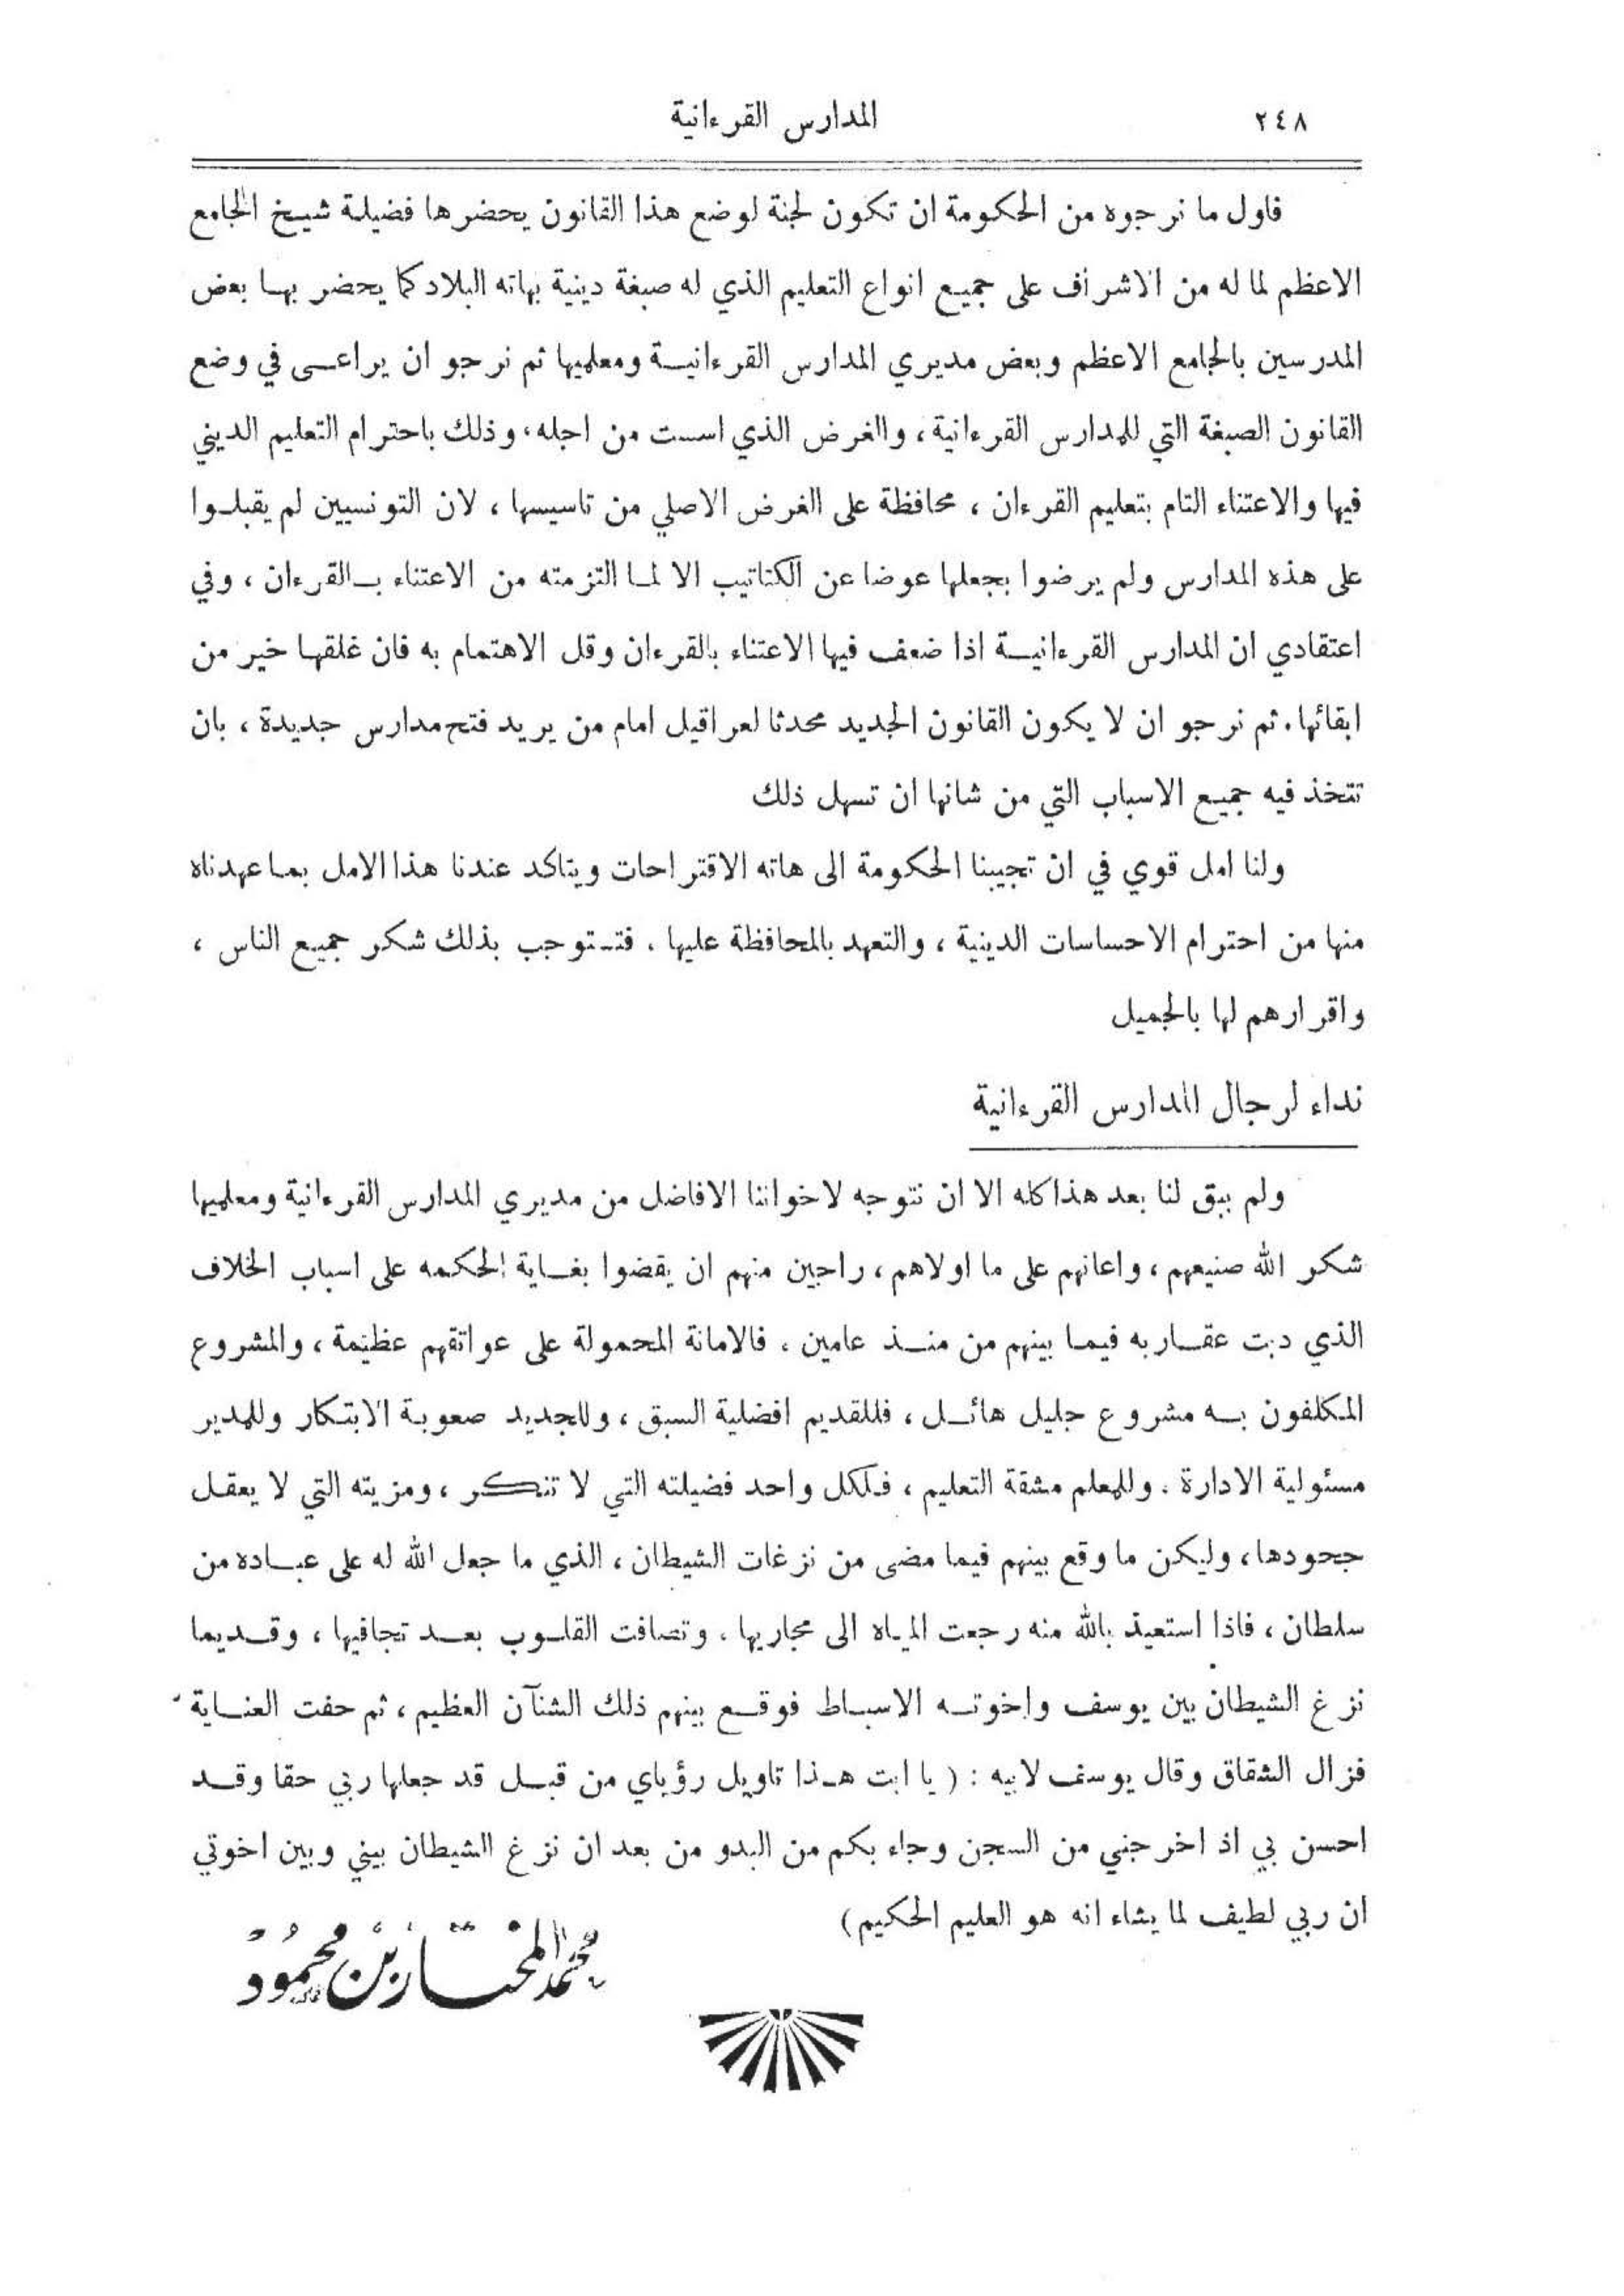 ٢٤٨
المدارس القرءانية
فاول ما نرجوه من الحكومة ان تكون لجنة لوضع هذا القانون يحضرها فضيلة شيخ الجامع
الاعظم لما له من الاشراف على جميع انواع التعليم الذي له صبغة دينية بهاته البلاد كما يحضر بها بعض
المدرسين بالجامع الاعظم وبعض مديري المدارس القرءانية ومعلميها ثم نرجو ان يراعى في وضع
القانون الصبغة التي للمدارس القرءانية ، والغرض الذي اسست من اجله، وذلك باحترام التعليم الديني
فيها والاعتناء التام بتعليم القرءان ، محافظة على الغرض الاصلي من تاسيسها ، لان التونسيين لم يقبلوا
على هذه المدارس ولم يرضوا بجعلها عوضا عن الكتاتيب الا لما التزمته من الاعتناء بالقرءان ، وفي
اعتقادي ان المدارس القرءانية اذا ضعف فيها الاعتناء بالقرءان وقل الاهتمام به فان غلقها خير من
ابقائها. ثم نرجو ان لا يكون القانون الجديد محدثا لعراقيل امام من يريد فتح مدارس جديدة ، بان
تتخذ فيه جميع الاسباب التي من شانها ان تسهل ذلك
ولنا امل قوي في ان تجيبنا الحكومة الى هاته الاقتراحات ويتاكد عندنا هذا الامل بما عهدناه
منها من احترام الاحساسات الدينية ، والتعهد بالمحافظة عليها . فتستوجب بذلك شكر جميع الناس ،
واقرارهم لها بالجميل
نداء لرجال المدارس القرءانية
ولم يبق لنا بعد هذا كله الا ان نتوجه لاخواننا الافاضل من مديري المدارس القرءانية ومعلميها
شكر الله صنيعهم ، واعانهم على ما اولاهم ، راجين منهم ان يقضوا بغاية الحكمه على اسباب الخلاف
الذي دبت عقاربه فيما بينهم من منذ عامين ، فالامانة المحمولة على عواتقهم عظيمة ، والمشروع
المكلفون به مشروع جليل هائل ، فللقديم افضلية السبق ، وللجديد صعوبة الابتكار وللمدير
مسئولية الادارة . وللمعلم مشقة التعليم ، فلكل واحد فضيلته التي لا تنكر ، ومزيته التي لا يعقل
جحودها ، وليكن ما وقع بينهم فيما مضى من نزغات الشيطان ، الذي ما جعل الله له على عباده من
سلطان ، فاذا استعيذ بالله منه رجعت المياه الى مجاريها . وتصافت القلوب بعد تجافيها ، وقديما
نزغ الشيطان بين يوسف واخوته الاسباط فوقع بينهم ذلك الشنآن العظيم ، ثم حفت العناية
فزال الشقاق وقال يوسف لابيه : ( يا ابت هذا تاويل رؤياي من قبل قد جعلها ربي حقا وقد
احسن بي اذ اخرجني من السجن وجاء بكم من البدو من بعد ان نزغ الشيطان بيني وبين اخوتي
ان ربي لطيف لما يشاء انه هو العليم الحكيم)
محمد المختار بن محمود